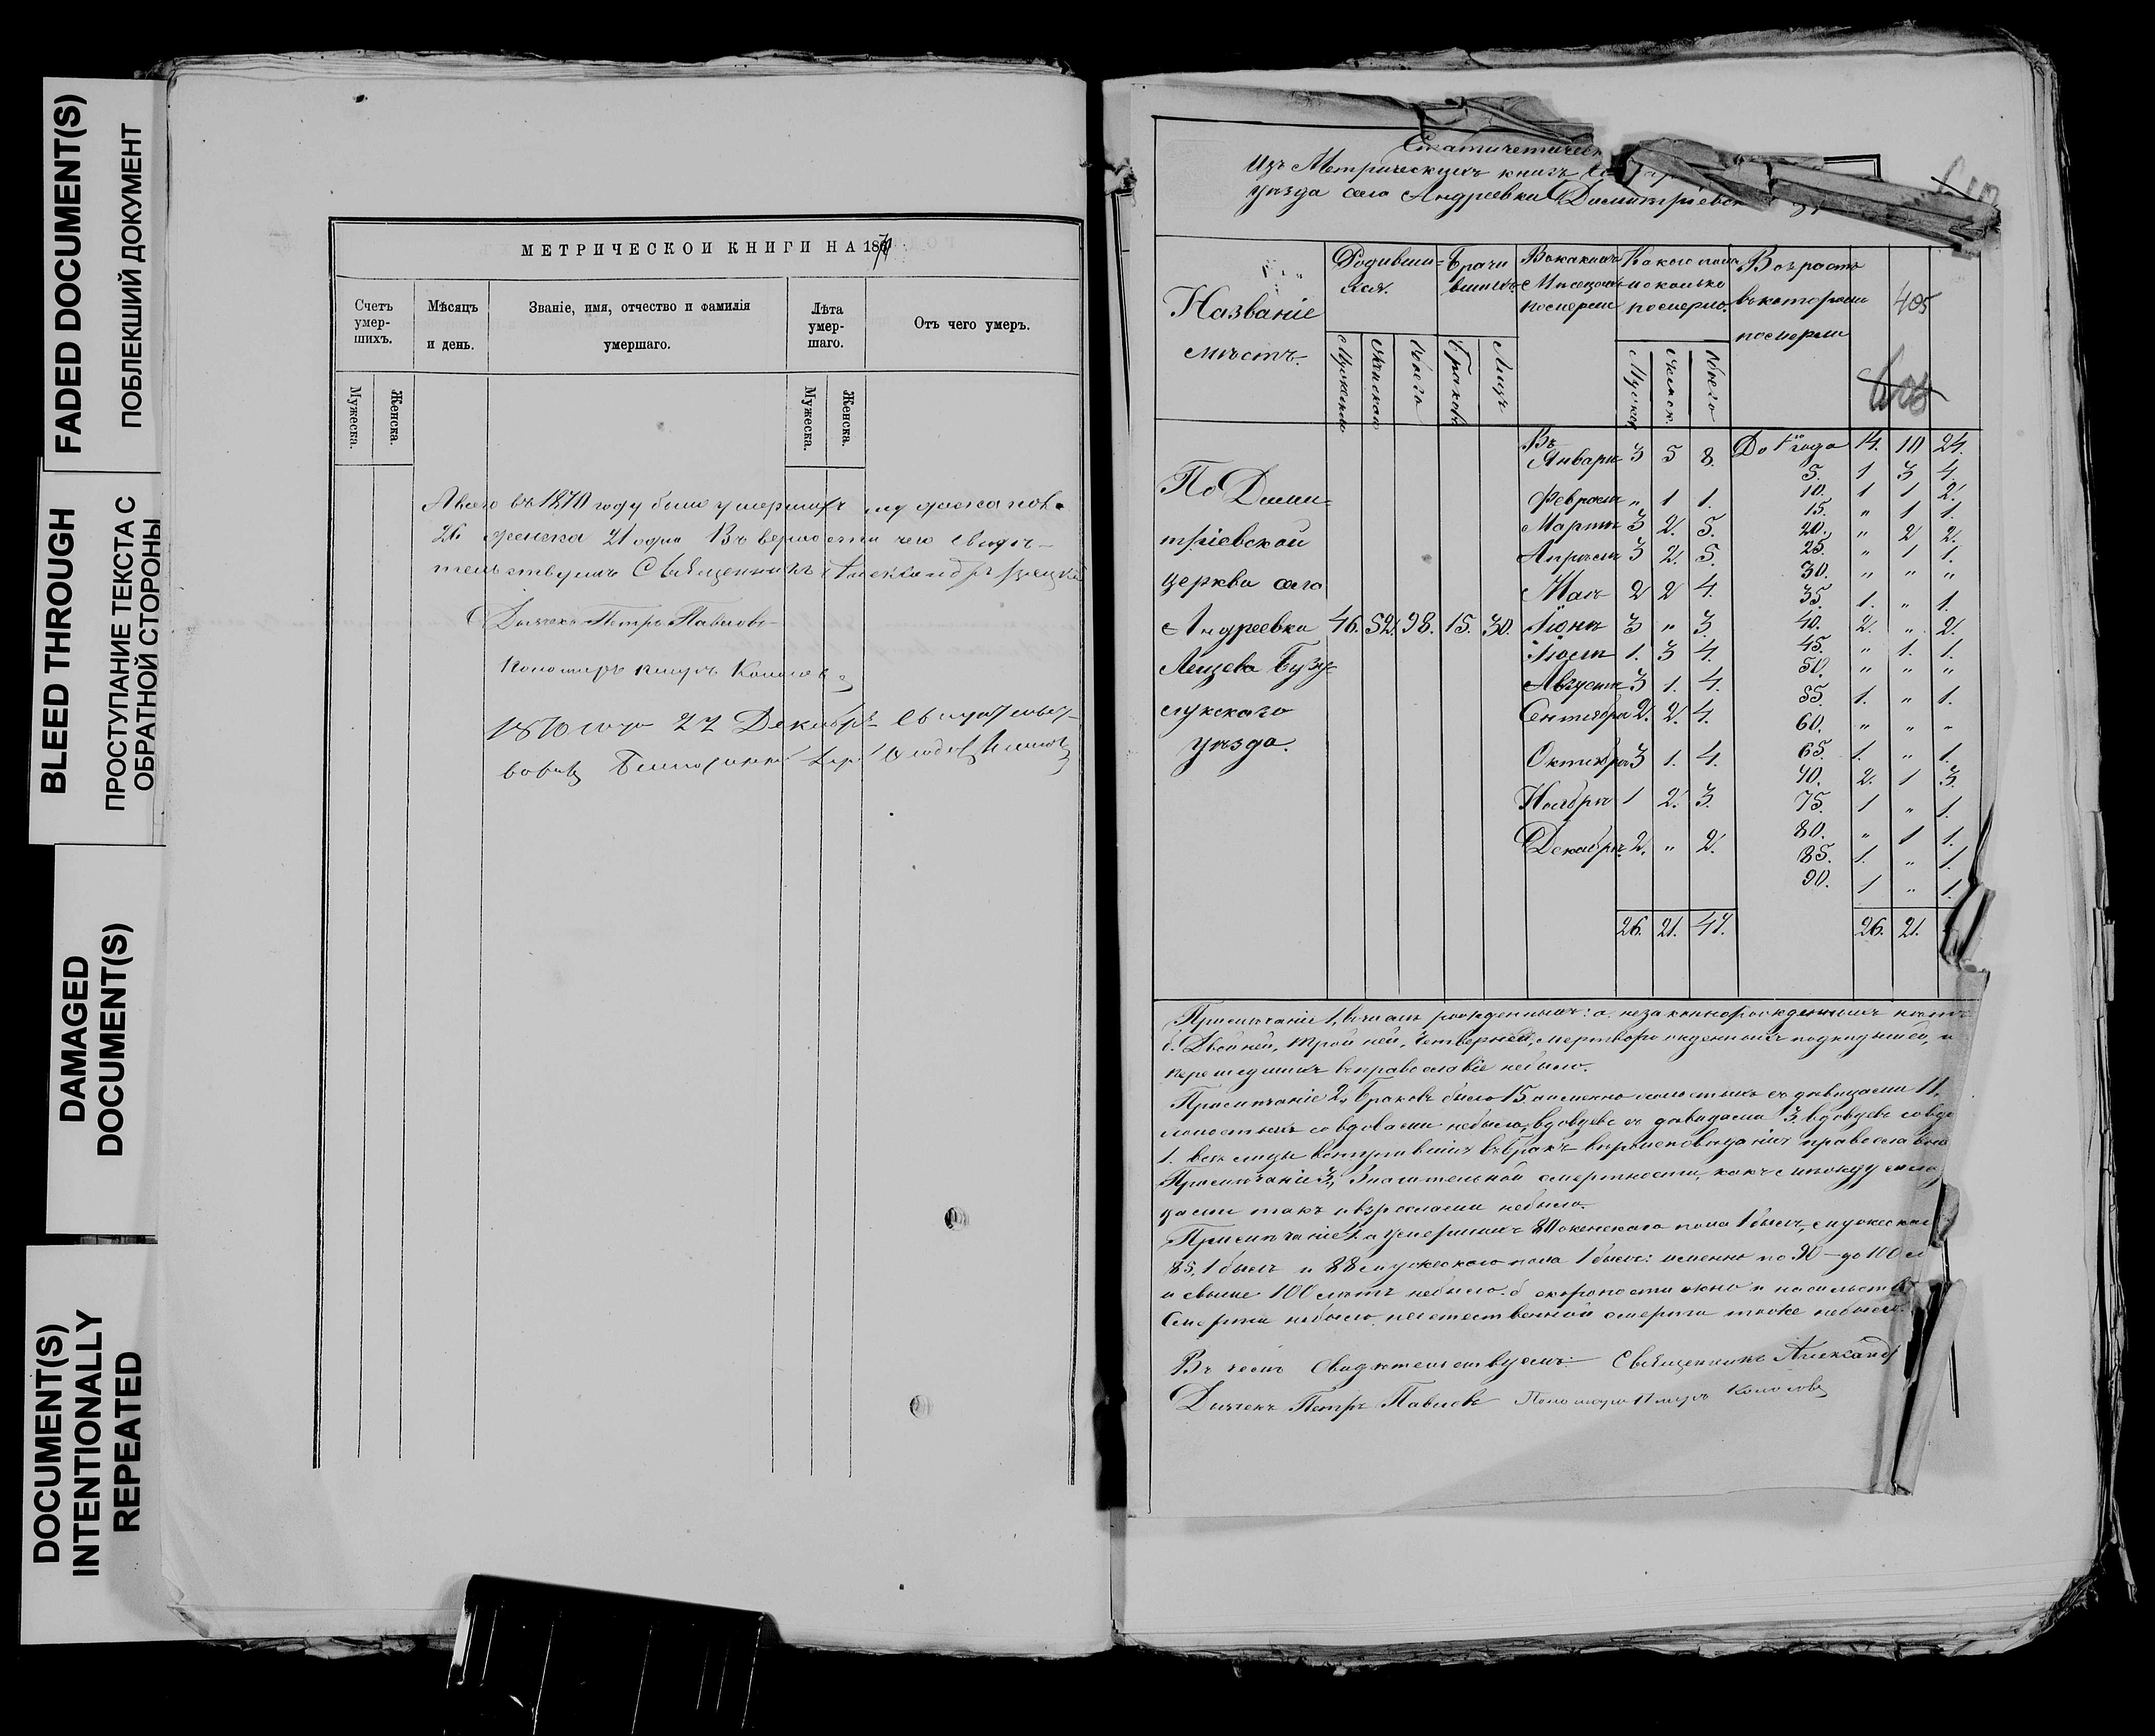 FADED DOCUMENT(S)
ПОБЛЕКШИЙ ДОКУМЕНТ
BLEED THROUGH
ПРОСТУПАНИЕ ТЕКСТА С
ОБРАТНОЙ СТОРОНЫ
DAMAGED
DOCUMENT(S)
DOCUMENT(S)
INTENTIONALLY
REPEATED
МЕТРИЧЕСКОИ КНИГИ НА 1870
Счетъ умер-шихъ.
Мѣсяцъ и день.
Званіе, имя, отчество и фамилія умершаго.
Лѣта умер-шаго.
Отъ чего умеръ.
Мужеска.
Женска.
Мужеска.
Женска.
Авсего въ 1870 году было умершихъ мужеска пола
26 женска 21 одна Въ верности чего свидѣ-
тельствуемъ Священникъ Александръ
Дьячекъ Петръ Павловъ
Пономарь
1870 года 22 Декабря
Изъ Метрическихъ книгъ
уѣзда села Андреевки Димитріевск
Названіе
мѣстъ.
Родивши-
хся.
Брачи
вшихъ
Въ какихъ
Мѣсяцахъ
померли
Какого пола
и сколько
померло.
Возрастъ
въ которомъ
померли
405
Мужеска
Женска
Всего
Браковъ
Лицъ
Мужск
Женск.
Всего
По Дими-
тріевской
церкви села
Андреевки 46. 52. 98. 15. 30.
Бузу-
лукскаго
уѣзда.
Въ
Январѣ 3 5 8.
Февралѣ " 1 1.
Мартѣ 3 2. 5.
Апрѣлѣ 3 2. 5.
Маѣ 2 2 4.
Іюнѣ 3 " 3.
Іюлѣ 1. 3 4.
Августѣ 3 1. 4.
Сентябрѣ 2. 2. 4.
Октябрѣ 3 1. 4.
Ноябрѣ 1 2. 3.
Декабрѣ 2. " 2.
26. 21. 47.
До 1го года 14. 10 24.
5. 1 3 4.
10. 1 1 2.
15. " 1 1.
20. " 2 2.
25. " 1 1.
30. " " "
35. 1. " 1.
40. 2. " 2.
45. " 1. 1.
50. " " "
55. 1. " 1.
60. " " "
65. 1. " 1.
70. 2. 1 3.
75. 1 " 1.
80. " 1 1.
85. 1. " 1.
90. 1 " 1.
26. 21.
Примѣчаніе 1, въ числѣ рожденныхъ: а. незаконнорожденныхъ
б. Двойней, тройней, четверней, мертворожденныхъ подкидышей, и
перешедшихъ въ православіе небыло.
Примѣчаніе 2, Браковъ было 15. а именно холостыхъ съ дѣвицами 11,
холостыхъ со вдовами небыло, вдовцевъ съ дѣвицами 3. вдовцевъ со вдо
1. всѣ лицы вступившія въ бракъ вѣроисповѣданія православна
Примѣчаніе 3, Значительной смертности, какъ между мла
дыми такъ и взрослыми небыло.
Примѣчаніе 4. а умершихъ 80 женскаго пола 1 былъ, мужескаго
85, 1 былъ и 88 мужескаго пола 1 былъ: именно по 90 — до 100 л
и свыше 100 лѣтъ небыло. б скоропостижно и насильств
Смерти небыло, неестественной смерти тоже небыло.
Въ чемъ Свидѣтельствуемъ: Священникъ Александръ
Дьячекъ Петръ Павловъ Пономарь